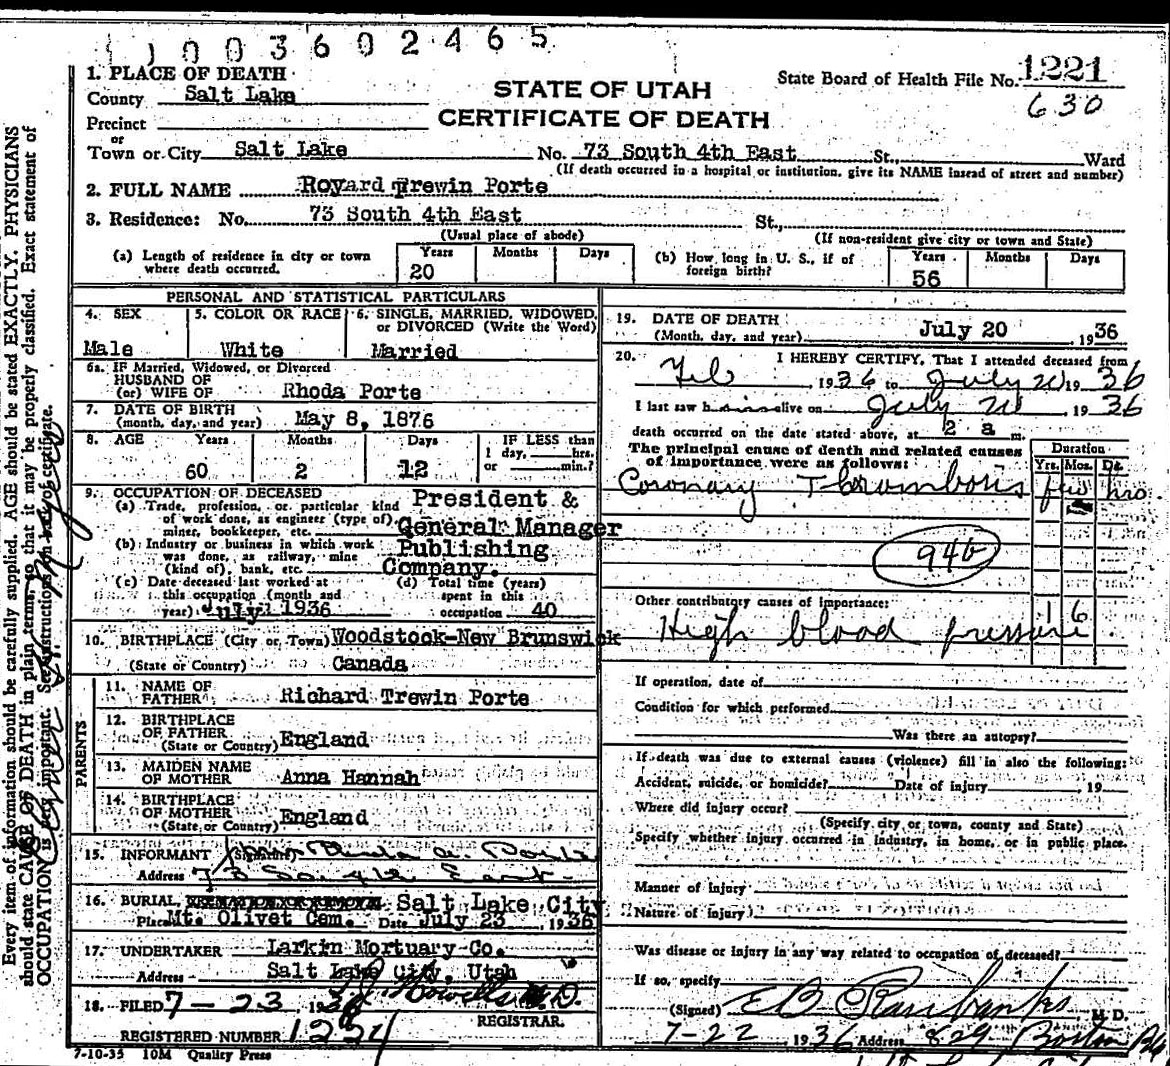 1003602465
1. PLACE OF DEATH
County Salt Lake
STATE OF UTAH
CERTIFICATE OF DEATH
State Board of Health File No. 1221
630
Precinct
or
Town or City Salt Lake No. 73 South 4th East St., Ward
(If death occurred in a hospital or institution, give its NAME instead of street and number)
2. FULL NAME Royard Trewin Porte
3. Residence: No. 73 South 4th East St.,
(Usual place of abode)
(If non-resident give city or town and State)
(a) Length of residence in city or town where death occurred.
Years Months Days
20
(b) How long in U. S., if of foreign birth?
Years Months Days
56
PERSONAL AND STATISTICAL PARTICULARS
4. SEX
Male
5. COLOR OR RACE
White
6. SINGLE, MARRIED, WIDOWED,
or DIVORCED (Write the Word)
Married
6a. If Married, Widowed, or Divorced
HUSBAND OF
(or) WIFE OF Rhoda Porte
7. DATE OF BIRTH
(month, day, and year) May 8, 1876
8. AGE Years Months Days IF LESS than
1 day, hrs.
or min.?
60 2 12
9. OCCUPATION OF DECEASED
(a) Trade, profession, or particular kind
of work done, as engineer (type of)
miner, bookkeeper, etc.
President &
General Manager
(b) Industry or business in which work
was done, as railway, mine
(kind of), bank, etc.
Publishing
Company.
(c) Date deceased last worked at
this occupation (month and
year) July 1936
(d) Total time (years)
spent in this
occupation 40
10. BIRTHPLACE (City or Town) Woodstock-New Brunswick
(State or Country) Canada
PARENTS
11. NAME OF
FATHER Richard Trewin Porte
12. BIRTHPLACE
OF FATHER
(State or Country) England
13. MAIDEN NAME
OF MOTHER Anna Hannah
14. BIRTHPLACE
OF MOTHER
(State or Country) England
15. INFORMANT (Signature)
Address 73 So 4th East
16. BURIAL, CREMATION OR REMOVAL Salt Lake City
Place Mt. Olivet Cem. Date July 23, 1936
17. UNDERTAKER Larkin Mortuary Co.
Address Salt Lake City, Utah
18. FILED 7-23 1936 Howells M.D.
REGISTRAR.
REGISTERED NUMBER 1224
7-10-35 10M Quality Press
19. DATE OF DEATH
(Month, day, and year) July 20, 1936
20. I HEREBY CERTIFY, That I attended deceased from
Feb 1936 to July 20 1936
I last saw him alive on July 20 1936
death occurred on the date stated above, at 2 a m.
The principal cause of death and related causes
of importance were as follows:
Duration
Yrs. Mos. Ds.
Coronary Thrombosis few hrs
94b
Other contributory causes of importance:
High blood pressure 1 6
If operation, date of
Condition for which performed
Was there an autopsy?
If death was due to external causes (violence) fill in also the following:
Accident, suicide, or homicide? Date of injury , 19
Where did injury occur?
(Specify city or town, county and State)
Specify whether injury occurred in industry, in home, or in public place.
Manner of injury
Nature of injury
Was disease or injury in any way related to occupation of deceased?
If so, specify
(Signed) E B Fairbanks M. D.
7-22 1936 Address 829 Boston Bldg
Every item of information should be carefully supplied. AGE should be stated EXACTLY. PHYSICIANS
should state CAUSE OF DEATH in plain terms, so that it may be properly classified. Exact statement of
OCCUPATION is very important. See instructions on back of certificate.